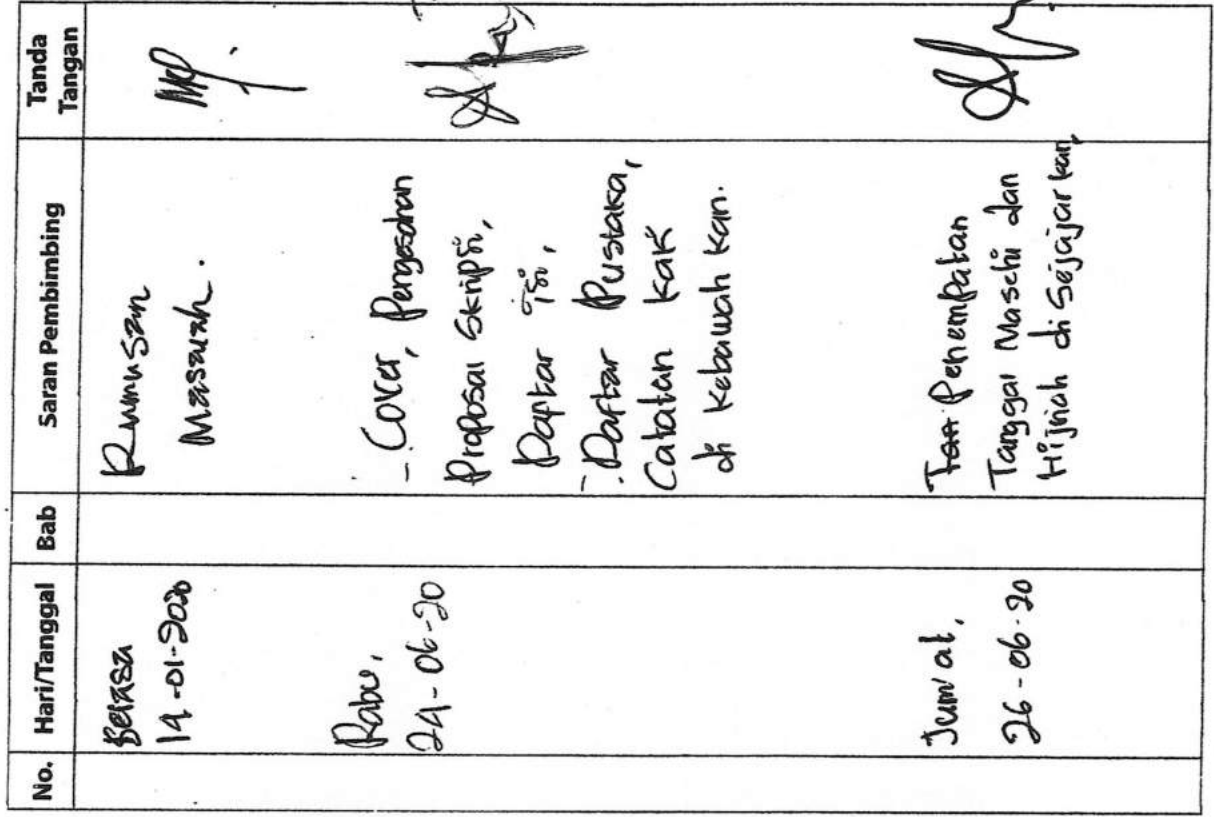 No. Hari/Tanggal Bab Saran Pembimbing Tanda Tangan
Selasa
14-01-2020
Rumusan
Masalah.
Rabu,
24-06-20
- Cover, Pengesahan
Proposal Skripsi,
Daftar isi,
- Daftar Pustaka,
Catatan kaki
di kebawah kan.
Jum'at,
26-06-20
Penempatan
Tanggal Masehi dan
Hijriah di Sejajarkan